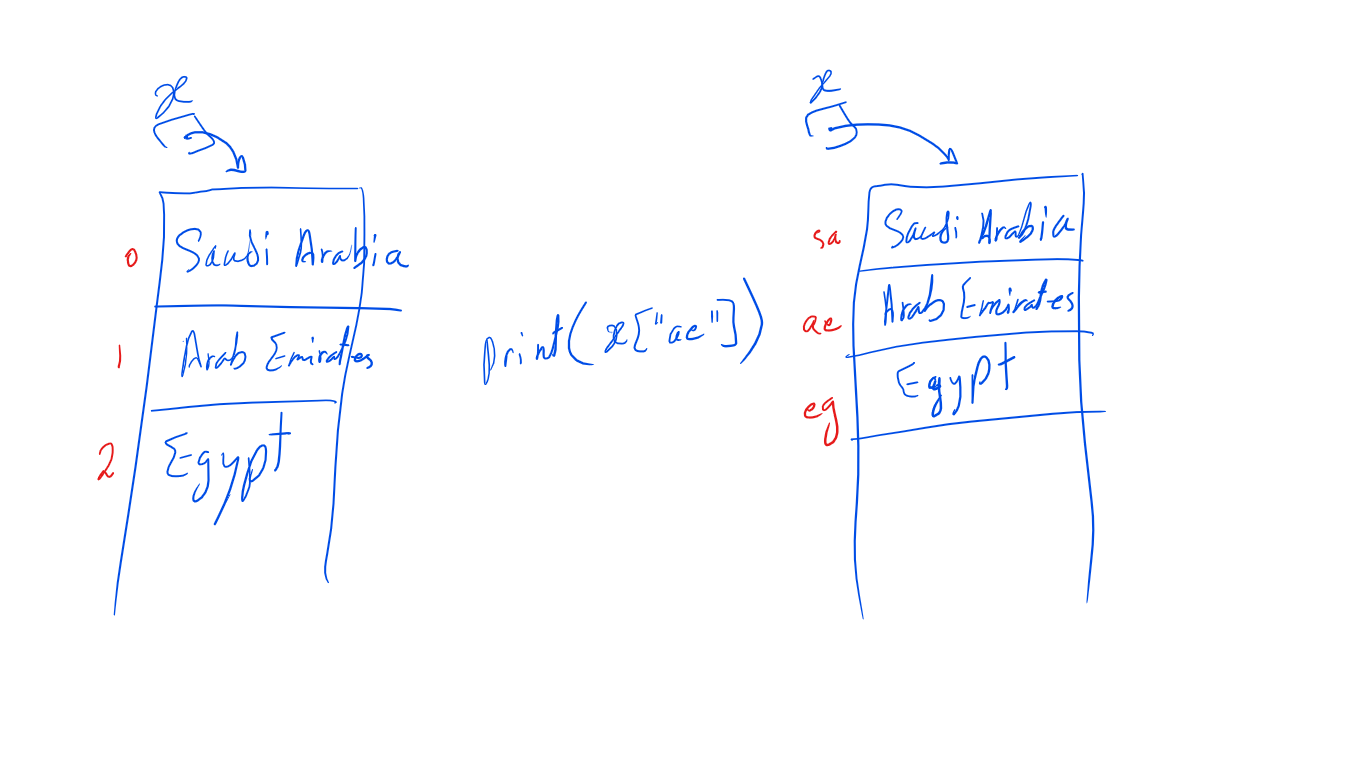 x
0 Saudi Arabia
1 Arab Emirates
2 Egypt
print(x["ae"])
x
sa Saudi Arabia
ae Arab Emirates
eg Egypt